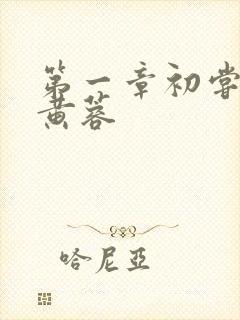 第一章初尝
黄蓉
哈尼亞